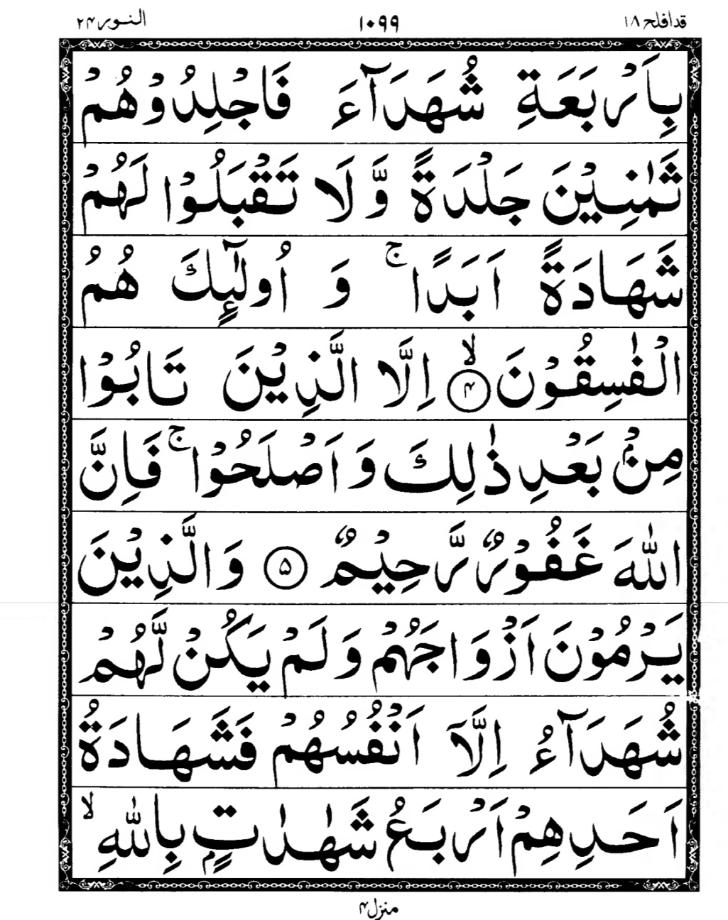 قد افلح ۱۸ ۱۰۹۹ النور ۲۴
بِاَرْبَعَةِ شُهَدَآءَ فَاجْلِدُوْهُمْ
ثَمٰنِيْنَ جَلْدَةً وَّ لَا تَقْبَلُوْا لَهُمْ
شَهَادَةً اَبَدًا ۚ وَ اُولٰٓئِكَ هُمُ
الْفٰسِقُوْنَ ۙ﴿۴﴾ اِلَّا الَّذِيْنَ تَابُوْا
مِنْۢ بَعْدِ ذٰلِكَ وَ اَصْلَحُوْا ۚ فَاِنَّ
اللّٰهَ غَفُوْرٌ رَّحِيْمٌ ﴿۵﴾ وَ الَّذِيْنَ
يَرْمُوْنَ اَزْوَاجَهُمْ وَ لَمْ يَكُنْ لَّهُمْ
شُهَدَآءُ اِلَّاۤ اَنْفُسُهُمْ فَشَهَادَةُ
اَحَدِهِمْ اَرْبَعُ شَهٰدٰتٍۭ بِاللّٰهِ ۙ
منزل ۴